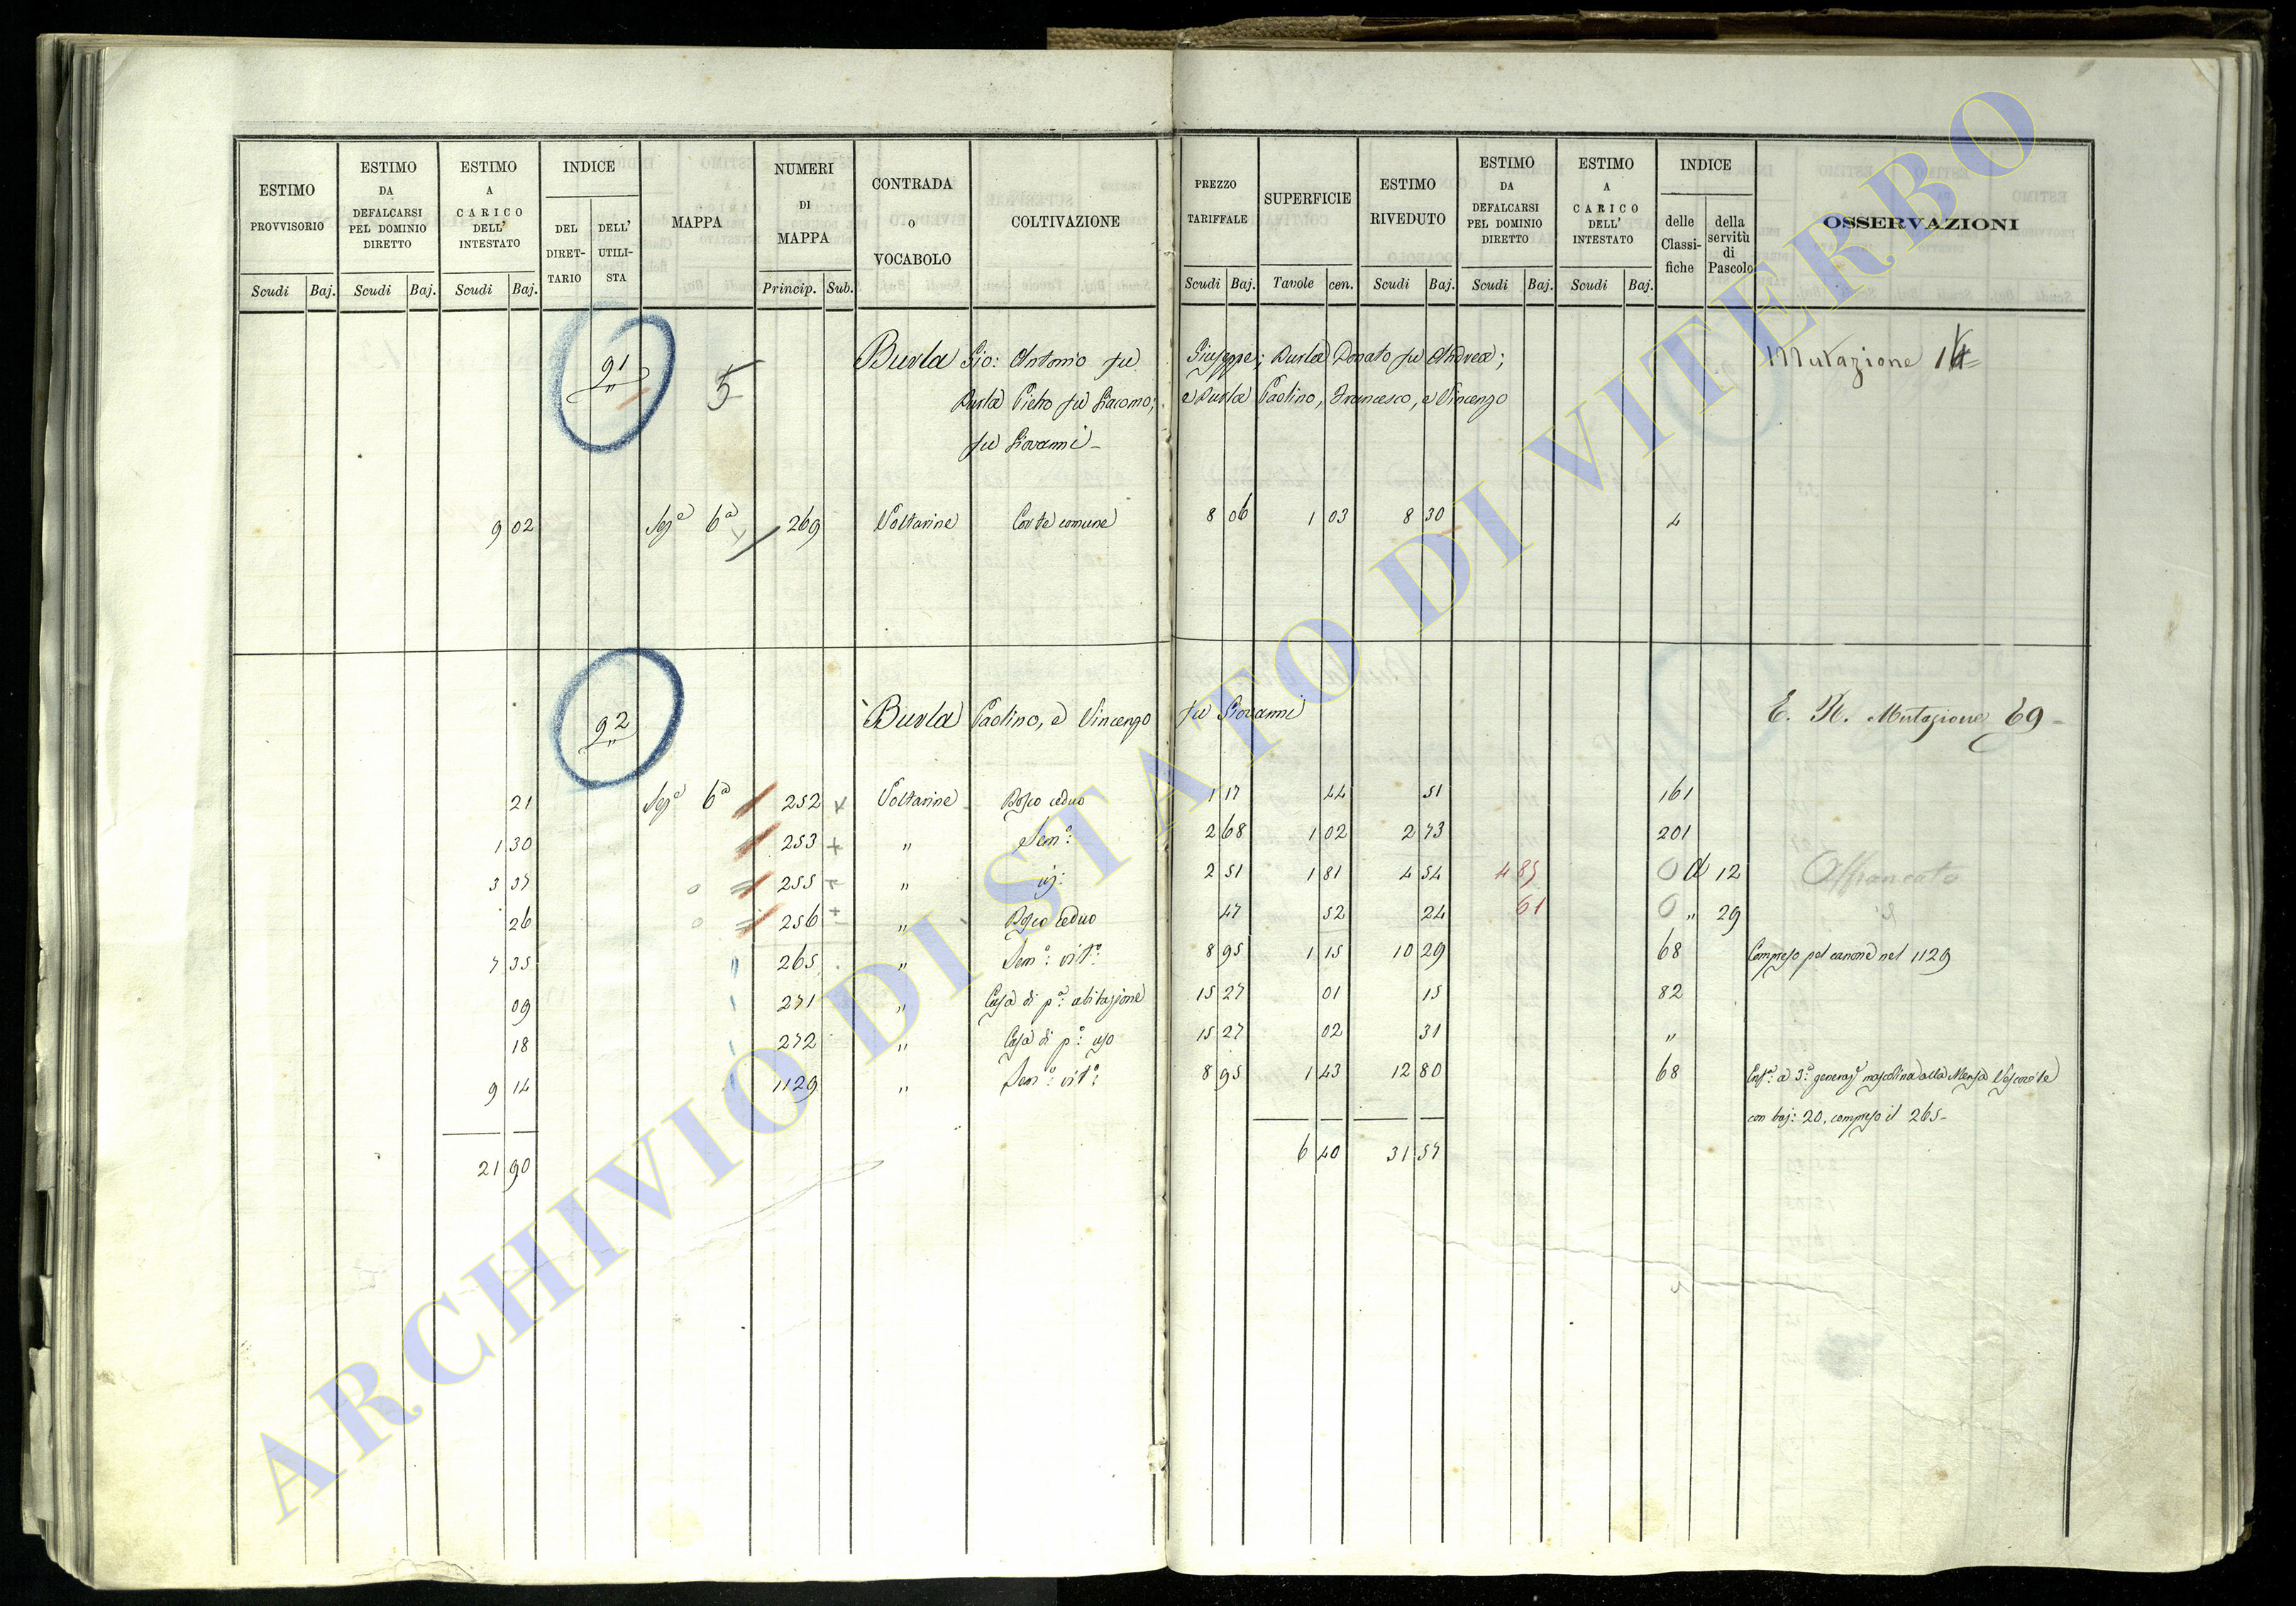 ESTIMO PROVVISORIO
Scudi Baj.
ESTIMO DA DEFALCARSI PEL DOMINIO DIRETTO
Scudi Baj.
ESTIMO A CARICO DELL' INTESTATO
Scudi Baj.
INDICE
DEL DIRET-TARIO
DELL' UTILI-STA
MAPPA
NUMERI DI MAPPA
Princip. Sub.
CONTRADA o VOCABOLO
COLTIVAZIONE
PREZZO TARIFFALE
Scudi Baj.
SUPERFICIE
Tavole cen.
ESTIMO RIVEDUTO
Scudi Baj.
ESTIMO DA DEFALCARSI PEL DOMINIO DIRETTO
Scudi Baj.
ESTIMO A CARICO DELL' INTESTATO
Scudi Baj.
INDICE
delle Classi-fiche
della servitù di Pascolo
OSSERVAZIONI
91 5 Burla Gio: Antonio fu Giuseppe; Burla Donato fu Andrea; Mutazione 14
Burla Pietro fu Giacomo; e Burla Paolino, Francesco, e Vincenzo
fu Giovanni
9 02 Sez.e 6a 269 Voltarine Corte comune 8 06 1 03 8 30 4
92 Burla Paolino, e Vincenzo fu Giovanni E. R. Mutazione 69
21 Sez.e 6a 252 + Voltarine Bosco ceduo 1 17 44 51 161
1 30 253 + " Sem.o: 2 68 1 02 2 73 201
3 37 0 255 + " id: 2 51 1 81 4 54 4 85 0 d 12 Affrancato
26 0 256 + " Bosco ceduo 47 52 24 61 0 " 29 id
7 35 265 " Sem.o: vit.o: 8 95 1 15 10 29 68 Compreso pel canone nel 1129
09 271 " Casa di p.a: abitazione 15 27 01 15 82
18 272 " Casa di p.o: uso 15 27 02 31 "
9 14 1129 " Sem.o: vit.o: 8 95 1 43 12 80 68 Enf.o: a 3.a generaz.e mascolina alla Mensa Vescovile
con baj: 20, compreso il 265
21 90 6 40 31 57
ARCHIVIO DI STATO DI VITERBO